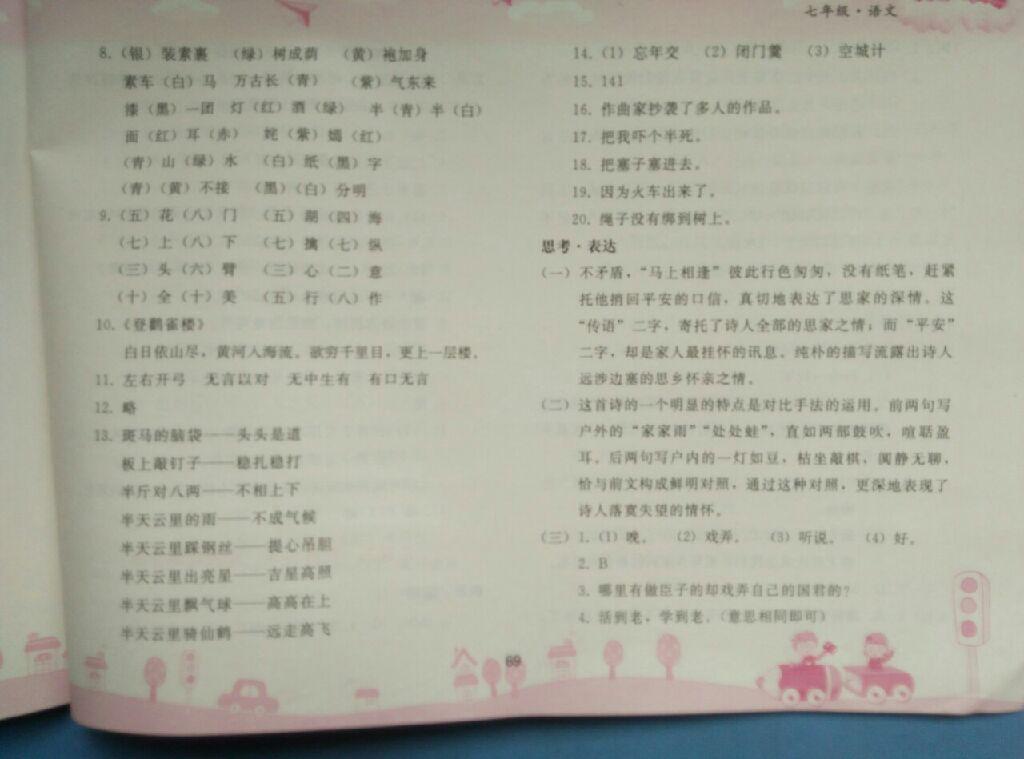 七年级·语文
8.（银）装素裹 （绿）树成荫 （黄）袍加身
素车（白）马 万古长（青） （紫）气东来
漆（黑）一团 灯（红）酒（绿） 半（青）半（白）
面（红）耳（赤） 姹（紫）嫣（红）
（青）山（绿）水 （白）纸（黑）字
（青）（黄）不接 （黑）（白）分明
9.（五）花（八）门 （五）湖（四）海
（七）上（八）下 （七）擒（七）纵
（三）头（六）臂 （三）心（二）意
（十）全（十）美 （五）行（八）作
10.《登鹳雀楼》
白日依山尽，黄河入海流。欲穷千里目，更上一层楼。
11. 左右开弓 无言以对 无中生有 有口无言
12. 略
13. 斑马的脑袋——头头是道
板上敲钉子——稳扎稳打
半斤对八两——不相上下
半天云里的雨——不成气候
半天云里踩钢丝——提心吊胆
半天云里出亮星——吉星高照
半天云里飘气球——高高在上
半天云里骑仙鹤——远走高飞
14.（1）忘年交 （2）闭门羹 （3）空城计
15. 141
16. 作曲家抄袭了多人的作品。
17. 把我吓个半死。
18. 把塞子塞进去。
19. 因为火车出来了。
20. 绳子没有绑到树上。
思考·表达
（一）不矛盾，“马上相逢”彼此行色匆匆，没有纸笔，赶紧
托他捎回平安的口信，真切地表达了思家的深情。这
“传语”二字，寄托了诗人全部的思家之情；而“平安”
二字，却是家人最挂怀的讯息。纯朴的描写流露出诗人
远涉边塞的思乡怀亲之情。
（二）这首诗的一个明显的特点是对比手法的运用。前两句写
户外的“家家雨”“处处蛙”，直如两部鼓吹，喧聒盈
耳。后两句写户内的一灯如豆，枯坐敲棋，阒静无聊，
恰与前文构成鲜明对照，通过这种对照，更深地表现了
诗人落寞失望的情怀。
（三）1.（1）晚。 （2）戏弄。 （3）听说。 （4）好。
2. B
3. 哪里有做臣子的却戏弄自己的国君的？
4. 活到老，学到老。（意思相同即可）
69